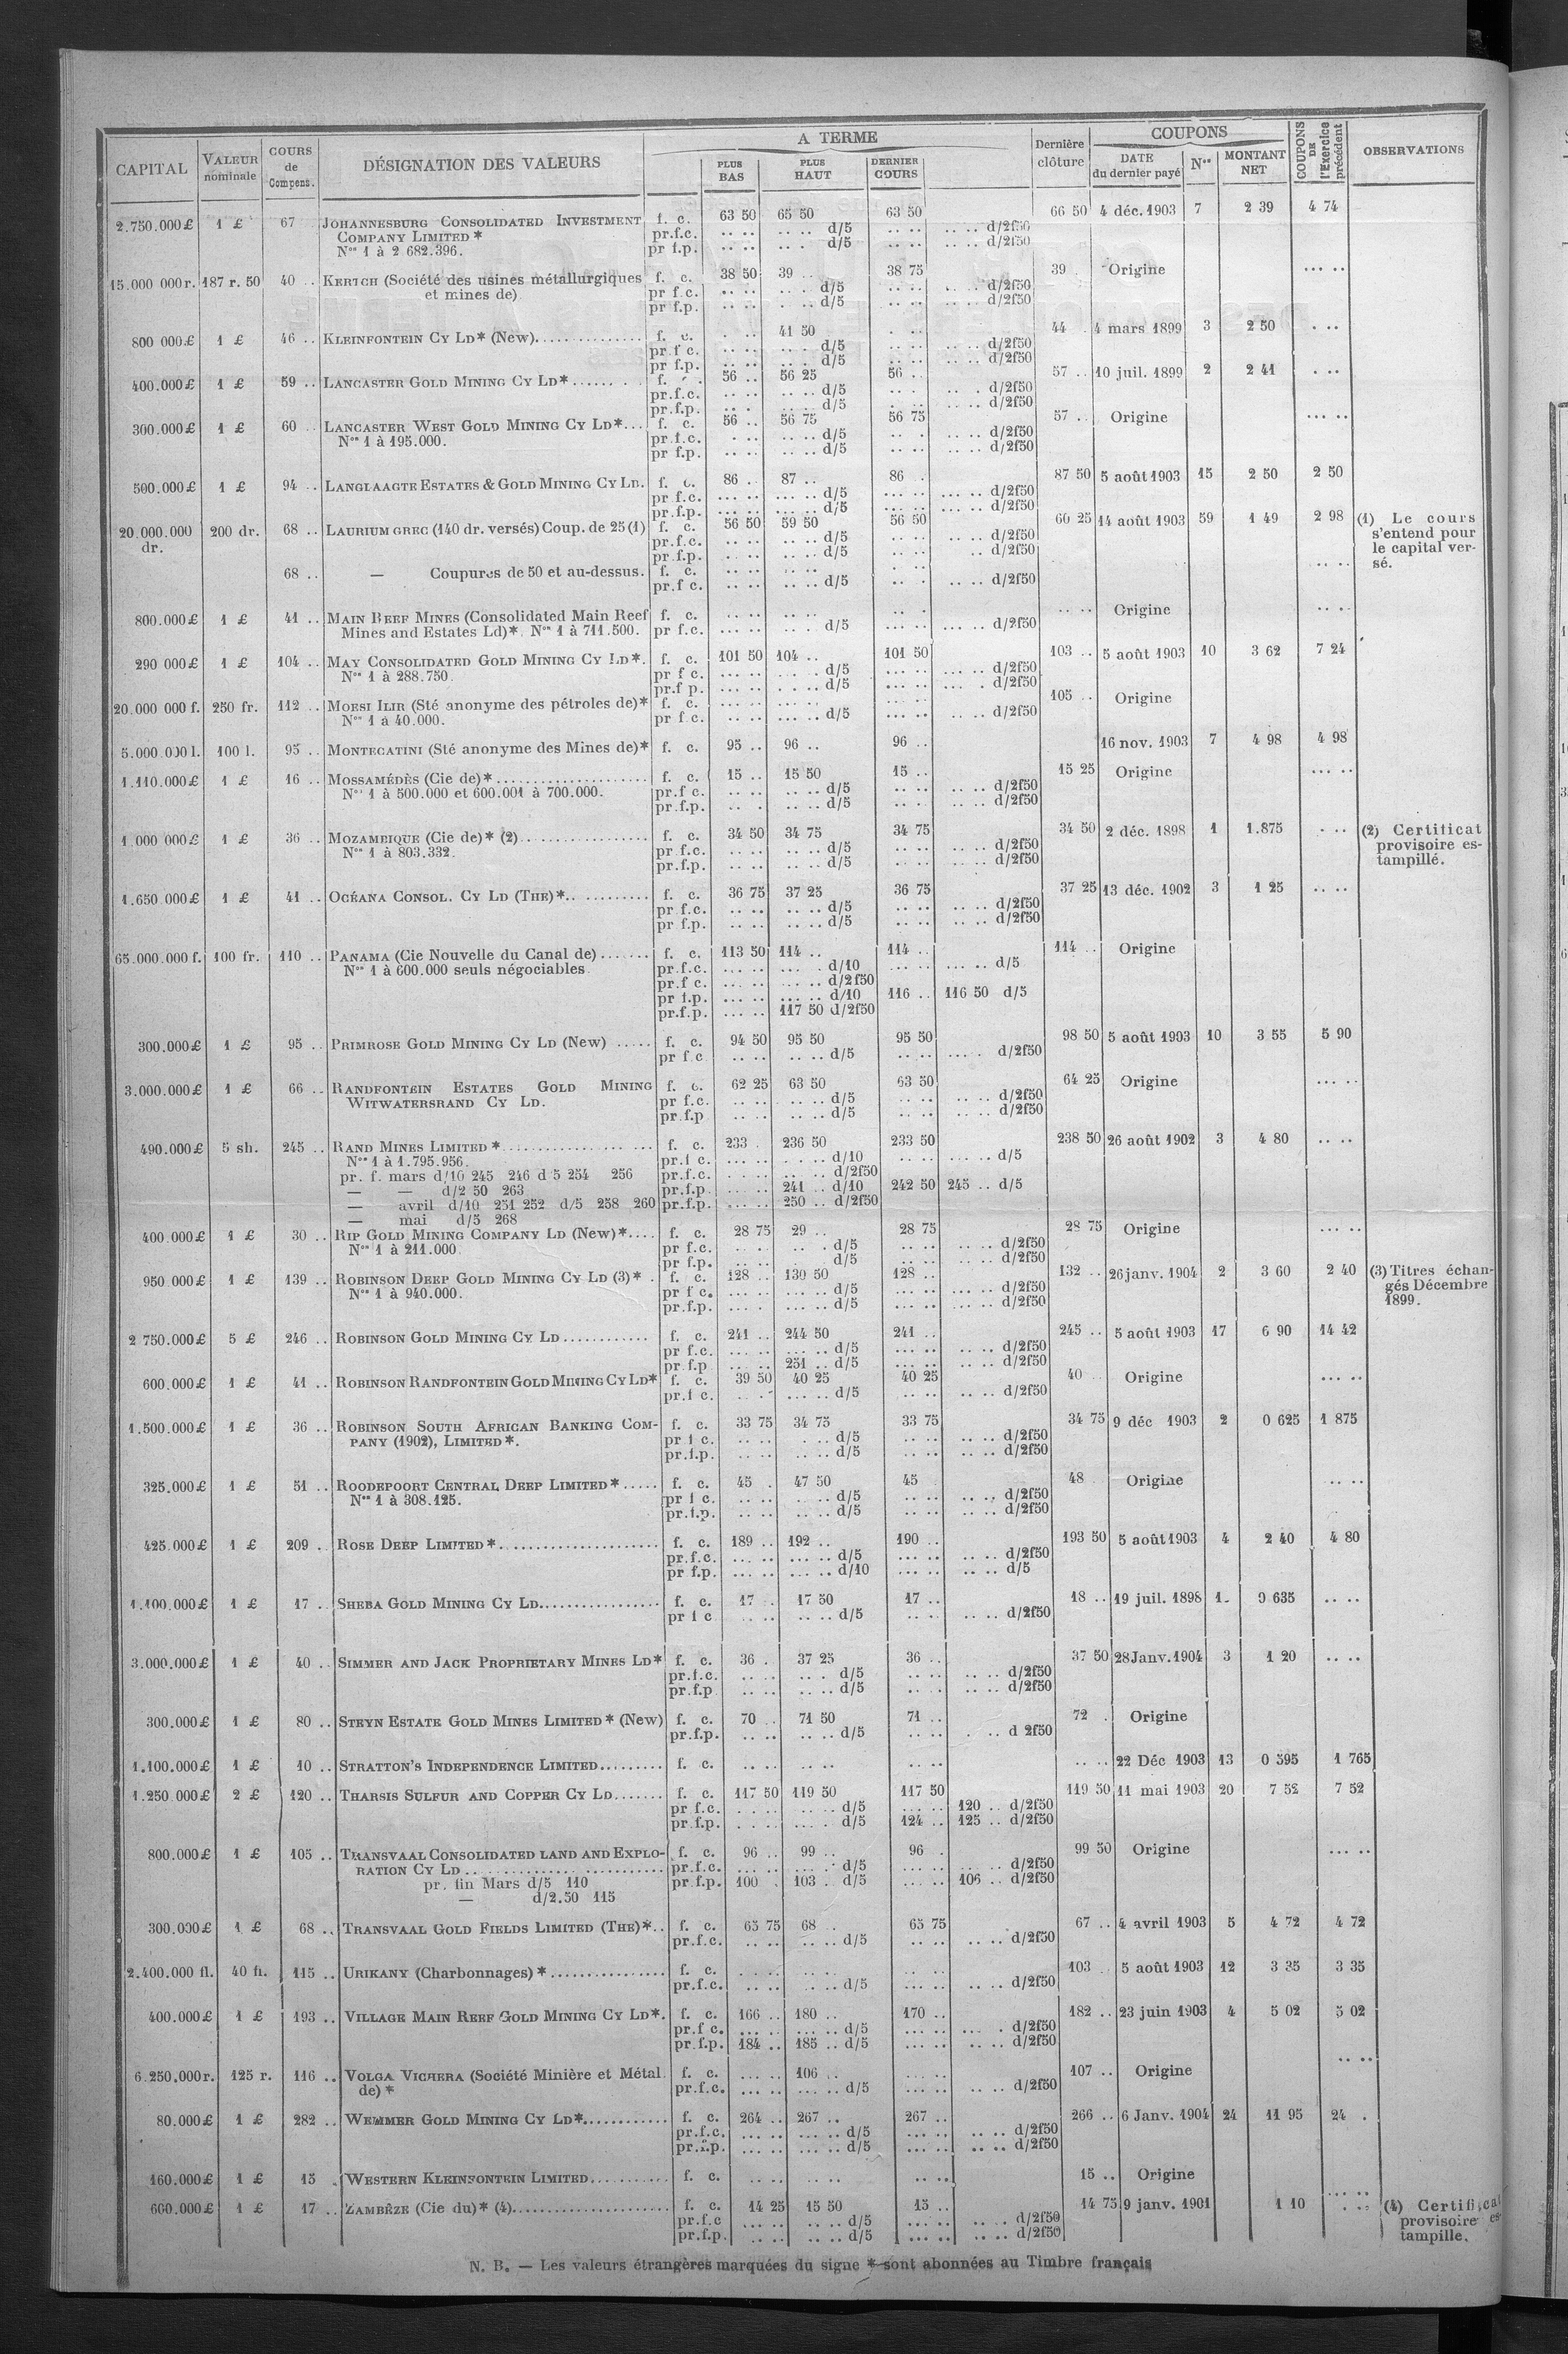 CAPITAL VALEUR nominale COURS de Compens. DÉSIGNATION DES VALEURS A TERME PLUS BAS PLUS HAUT DERNIER COURS Dernière clôture COUPONS DATE du dernier payé Nos MONTANT NET COUPONS DE l'Exercice précédent OBSERVATIONS
2.750.000£ 1 £ 67 JOHANNESBURG CONSOLIDATED INVESTMENT f. c. 63 50 65 50 63 50 66 50 4 déc. 1903 7 2 39 4 74
COMPANY LIMITED * pr.f.c. .. .. .. .. d/5 .. .. .. .. d/2f50
Nos 1 à 2 682.396. pr f.p. .. .. .. . d/5 .. .. .. .. d/2f50
15.000 000r. 187 r. 50 40 .. KERTCH (Société des usines métallurgiques f. c. 38 50 39 .. 38 75 39 . Origine ... ..
et mines de) pr f.c. .. .. .. . d/5 .. .. .. .. d/2f50
pr f.p. .. .. . .. d/5 .. .. .. .. d/2f50
800 000£ 1 £ 46 .. KLEINFONTEIN CY LD* (New) f. c. . .. 41 50 . .. 44 . 4 mars 1899 3 2 50 . ..
pr f c. .. .. .. . d/5 .. .. .. .. d/2f50
pr f.p. .. .. .. . d/5 .. .. .. .. d/2f50
400.000£ 1 £ 59 .. LANCASTER GOLD MINING CY LD* f. . 56 .. 56 25 56 .. 57 .. 10 juil. 1899 2 2 41 . ..
pr.f.c. .. .. .. .. d/5 .. . .. .. d/2f50
pr.f.p. .. . .. .. d/5 .. .. .. .. d/2f50
300.000£ 1 £ 60 .. LANCASTER WEST GOLD MINING CY LD* f. c. 56 .. 56 75 56 75 57 .. Origine ... ..
Nos 1 à 195.000. pr.f.c. . .. .. .. d/5 .. . .. .. d/2f50
pr f.p. .. .. .. .. d/5 .. .. .. .. d/2f50
500.000£ 1 £ 94 .. LANGLAAGTE ESTATES & GOLD MINING CY LD. f. c. 86 .. 87 .. 86 . 87 50 5 août 1903 15 2 50 2 50
pr f.c. ... .. ... .. d/5 ... .. ... .. d/2f50
pr.f.p. ... .. ... .. d/5 ... .. ... .. d/2f50
20.000.000 dr. 200 dr. 68 .. LAURIUM GREC (140 dr. versés) Coup. de 25 (1) f. c. 56 50 59 50 56 50 60 25 14 août 1903 59 1 49 2 98 (1) Le cours
pr.f.c. .. .. .. .. d/5 .. .. .. .. d/2f50 s'entend pour
pr.f.p. .. .. .. .. d/5 .. .. .. d/2f50 le capital ver-
68 .. — Coupures de 50 et au-dessus. f. c. .. .. .. .. . .. .. .. sé.
pr.f c. .. .. .. .. d/5 .. . .. .. d/2f50
800.000£ 1 £ 41 .. MAIN REEF MINES (Consolidated Main Reef f. c. .. .. .. .. .. . .. .. Origine .. ..
Mines and Estates Ld)*. Nos 1 à 711.500. pr f.c. ... .. .. . d/5 ... .. ... .. d/2f50
290 000£ 1 £ 104 .. MAY CONSOLIDATED GOLD MINING CY LD*. f. c. 101 50 104 .. 101 50 103 .. 5 août 1903 10 3 62 7 24
Nos 1 à 288.750. pr f c. ... .. .. . d/5 ... .. ... .. d/2f50
pr.f p. ... .. . .. d/5 ... .. ... . d/2f50
20.000 000 f. 250 fr. 112 .. MOESI ILIR (Sté anonyme des pétroles de)* f. c. ... .. ... .. ... .. 105 .. Origine
Nos 1 à 40.000. pr f.c. .. .. ... .. d/5 .. .. .. .. d/2f50
5.000.000 l. 100 l. 95 .. MONTECATINI (Sté anonyme des Mines de)* f. c. 95 .. 96 .. 96 .. 16 nov. 1903 7 4 98 4 98
1.110.000£ 1 £ 16 .. MOSSAMÉDÈS (Cie de)* f. c. 15 .. 15 50 15 .. 15 25 Origine ... ..
Nos 1 à 500.000 et 600.001 à 700.000. pr.f c. .. .. .. .. d/5 .. .. .. .. d/2f50
pr.f.p. .. . .. .. d/5 .. . .. .. d/2f50
1.000 000£ 1 £ 36 .. MOZAMBIQUE (Cie de)* (2) f. c. 34 50 34 75 34 75 34 50 2 déc. 1898 1 1.875 . .. (2) Certificat
Nos 1 à 803.332. pr f.c. .. .. .. .. d/5 .. .. .. .. d/2f50 provisoire es-
pr.f.p. .. .. .. .. d/5 .. .. .. .. d/2f50 tampillé.
1.650 000£ 1 £ 41 .. OCÉANA CONSOL. CY LD (THE)* f. c. 36 75 37 25 36 75 37 25 13 déc. 1902 3 1 25 .. ..
pr f.c. .. .. .. .. d/5 .. .. .. .. d/2f50
pr f.p. .. .. .. .. d/5 .. .. .. .. d/2f50
65.000.000 f. 100 fr. 110 .. PANAMA (Cie Nouvelle du Canal de) f. c. 113 50 114 .. 114 .. 114 .. Origine
Nos 1 à 600.000 seuls négociables. pr.f.c. ... .. ... . d/10 ... .. ... .. d/5
pr.f c. ... .. ... .. d/2f50
pr f.p. ... .. ... .. d/10 116 .. 116 50 d/5
pr.f.p. ... .. 117 50 d/2f50
300.000£ 1 £ 95 .. PRIMROSE GOLD MINING CY LD (New) f. c. 94 50 95 50 95 50 98 50 5 août 1903 10 3 55 5 90
pr f c .. .. .. .. d/5 .. .. ... . d/2f50
3.000.000£ 1 £ 66 .. RANDFONTEIN ESTATES GOLD MINING f. c. 62 25 63 50 63 50 64 25 Origine ... ..
WITWATERSRAND CY LD. pr f.c. .. .. .. .. d/5 .. .. .. .. d/2f50
pr.f.p .. .. .. .. d/5 .. .. .. .. d/2f50
490.000£ 5 sh. 245 .. RAND MINES LIMITED * f. c. 233 . 236 50 233 50 238 50 26 août 1902 3 4 80 .. ..
Nos 1 à 1.795.956. pr.f c. ... .. . .. d/10 .. .. ... .. d/5
pr. f. mars d/10 245 246 d 5 254 256 pr.f.c. . .. .. .. .. d/2f50
— — d/2 50 263 pr.f.p. ... .. 241 .. d/10 242 50 245 .. d/5
— avril d/10 251 252 d/5 258 260 pr.f.p. ... .. 250 .. d/2f50
— mai d/5 268
400.000£ 1 £ 30 .. RIP GOLD MINING COMPANY LD (New)* f. c. 28 75 29 .. 28 75 28 75 Origine ... ..
Nos 1 à 211.000. pr f.c. .. . .. . d/5 .. .. .. .. d/2f50
pr f.p. .. .. .. d/5 .. .. .. .. d/2f50
950 000£ 1 £ 139 .. ROBINSON DEEP GOLD MINING CY LD (3)* f. c. 128 .. 130 50 128 .. 132 .. 26 janv. 1904 2 3 60 2 40 (3) Titres échan-
Nos 1 à 940.000. pr f c. ... .. ... .. d/5 ... .. ... .. d/2f50 gés Décembre
pr.f.p. ... . ... .. d/5 ... .. ... .. d/2f50 1899.
2 750.000£ 5 £ 246 .. ROBINSON GOLD MINING CY LD f. c. 241 .. 244 50 241 .. 245 .. 5 août 1903 17 6 90 14 42
pr f.c. ... .. ... .. d/5 ... .. .. .. d/2f50
pr.f.p ... .. 251 .. d/5 ... .. .. .. d/2f50
600.000£ 1 £ 41 .. ROBINSON RANDFONTEIN GOLD MINING CY LD* f. c. 39 50 40 25 40 25 40 .. Origine ... ..
pr.f c. .. .. ... .. d/5 .. .. .. .. d/2f50
1.500.000£ 1 £ 36 .. ROBINSON SOUTH AFRICAN BANKING COM- f. c. 33 75 34 75 33 75 34 75 9 déc 1903 2 0 625 1 875
PANY (1902), LIMITED*. pr f c. .. .. . .. d/5 .. .. .. .. d/2f50
pr.f.p. .. .. .. .. d/5 .. .. .. .. d/2f50
325.000£ 1 £ 51 .. ROODEPOORT CENTRAL DEEP LIMITED* f. c. 45 . 47 50 45 48 . Origine .. ..
Nos 1 à 308.125. pr f c. .. .. . .. d/5 .. .. .. .. d/2f50
pr.f.p. .. .. .. .. d/5 .. .. .. .. d/2f50
425.000£ 1 £ 209 . ROSE DEEP LIMITED* f. c. 189 .. 192 .. 190 .. 193 50 5 août 1903 4 2 40 4 80
pr.f.c. ... .. ... .. d/5 ... .. .. .. d/2f50
pr f.p. ... .. ... .. d/10 ... .. .. .. d/5
1.100.000£ 1 £ 17 .. SHEBA GOLD MINING CY LD f. c. 17 .. 17 50 17 .. 18 .. 19 juil. 1898 1. 0 635 .. ..
pr f c .. .. .. .. d/5 .. .. .. .. d/2f50
3.000.000£ 1 £ 40 .. SIMMER AND JACK PROPRIETARY MINES LD* f. c. 36 . 37 25 36 .. 37 50 28 Janv. 1904 3 1 20 .. ..
pr.f.c. .. .. .. . d/5 .. .. .. .. d/2f50
pr.f.p .. .. .. .. d/5 .. . .. .. d/2f50
300.000£ 1 £ 80 .. STEYN ESTATE GOLD MINES LIMITED* (New) f. c. 70 .. 71 50 71 .. 72 . Origine
pr.f.p. .. .. .. .. d/5 .. .. . .. d 2f50
1.100.000£ 1 £ 10 .. STRATTON'S INDEPENDENCE LIMITED f. c. .. .. .. .. .. .. .. .. 22 Déc 1903 13 0 595 1 765
1.250 000£ 2 £ 120 .. THARSIS SULFUR AND COPPER CY LD f. c. 117 50 119 50 117 50 119 50 11 mai 1903 20 7 52 7 52
pr f.c. . .. . .. .. d/5 ... .. 120 .. d/2f50
pr.f.p. . .. . ... . d/5 124 .. 125 .. d/2f50
800.000£ 1 £ 105 .. TRANSVAAL CONSOLIDATED LAND AND EXPLO- f. c. 96 .. 99 .. 96 . 99 50 Origine ... ..
RATION CY LD pr.f.c. ... .. ... .. d/5 ... .. ... .. d/2f50
pr. fin Mars d/5 110 pr.f.p. 100 . 103 . d/5 ... .. 106 .. d/2f50
— d/2.50 115
300.000£ 1 £ 68 .. TRANSVAAL GOLD FIELDS LIMITED (THE)* f. c. 65 75 68 .. 65 75 67 .. 4 avril 1903 5 4 72 4 72
pr.f.c. .. .. .. .. d/5 .. .. .. .. d/2f50
2.400.000 fl. 40 fl. 115 .. URIKANY (Charbonnages)* f. c. . .. .. .. .. .. 103 . 5 août 1903 12 3 35 3 35
pr.f.c. .. .. . .. d/5 .. .. .. .. d/2f50
400.000£ 1 £ 193 .. VILLAGE MAIN REEF GOLD MINING CY LD*. f. c. 166 .. 180 .. 170 .. 182 .. 23 juin 1903 4 5 02 5 02
pr.f c. ... .. ... .. d/5 ... .. ... . d/2f50
pr.f.p. 184 .. 185 .. d/5 ... .. .. .. d/2f50
6.250.000r. 125 r. 116 .. VOLGA VICHERA (Société Minière et Métal. f. c. ... .. 106 .. ... .. 107 .. Origine .. ..
de)* pr.f.c. ... .. ... .. d/5 ... .. .. .. d/2f50
80.000£ 1 £ 282 .. WEMMER GOLD MINING CY LD* f. c. 264 .. 267 .. 267 .. 266 .. 6 Janv. 1904 24 11 95 24 .
pr.f.c. ... .. ... .. d/5 ... .. .. .. d/2f50
pr.f.p. ... .. ... .. d/5 ... .. .. .. d/2f50
160.000£ 1 £ 15 . WESTERN KLEINFONTEIN LIMITED f. c. .. .. .. .. .. .. 15 .. Origine
600.000£ 1 £ 17 .. ZAMBÈZE (Cie du)* (4) f. c. 14 25 15 50 15 .. 14 75 9 janv. 1901 1 10 . .. (4) Certificat
pr.f.c ... .. .. .. d/5 ... .. .. . d/2f50 provisoire es-
pr.f.p. .. .. .. .. d/5 ... .. .. .. d/2f50 tampille.
N. B. — Les valeurs étrangères marquées du signe * sont abonnées au Timbre français